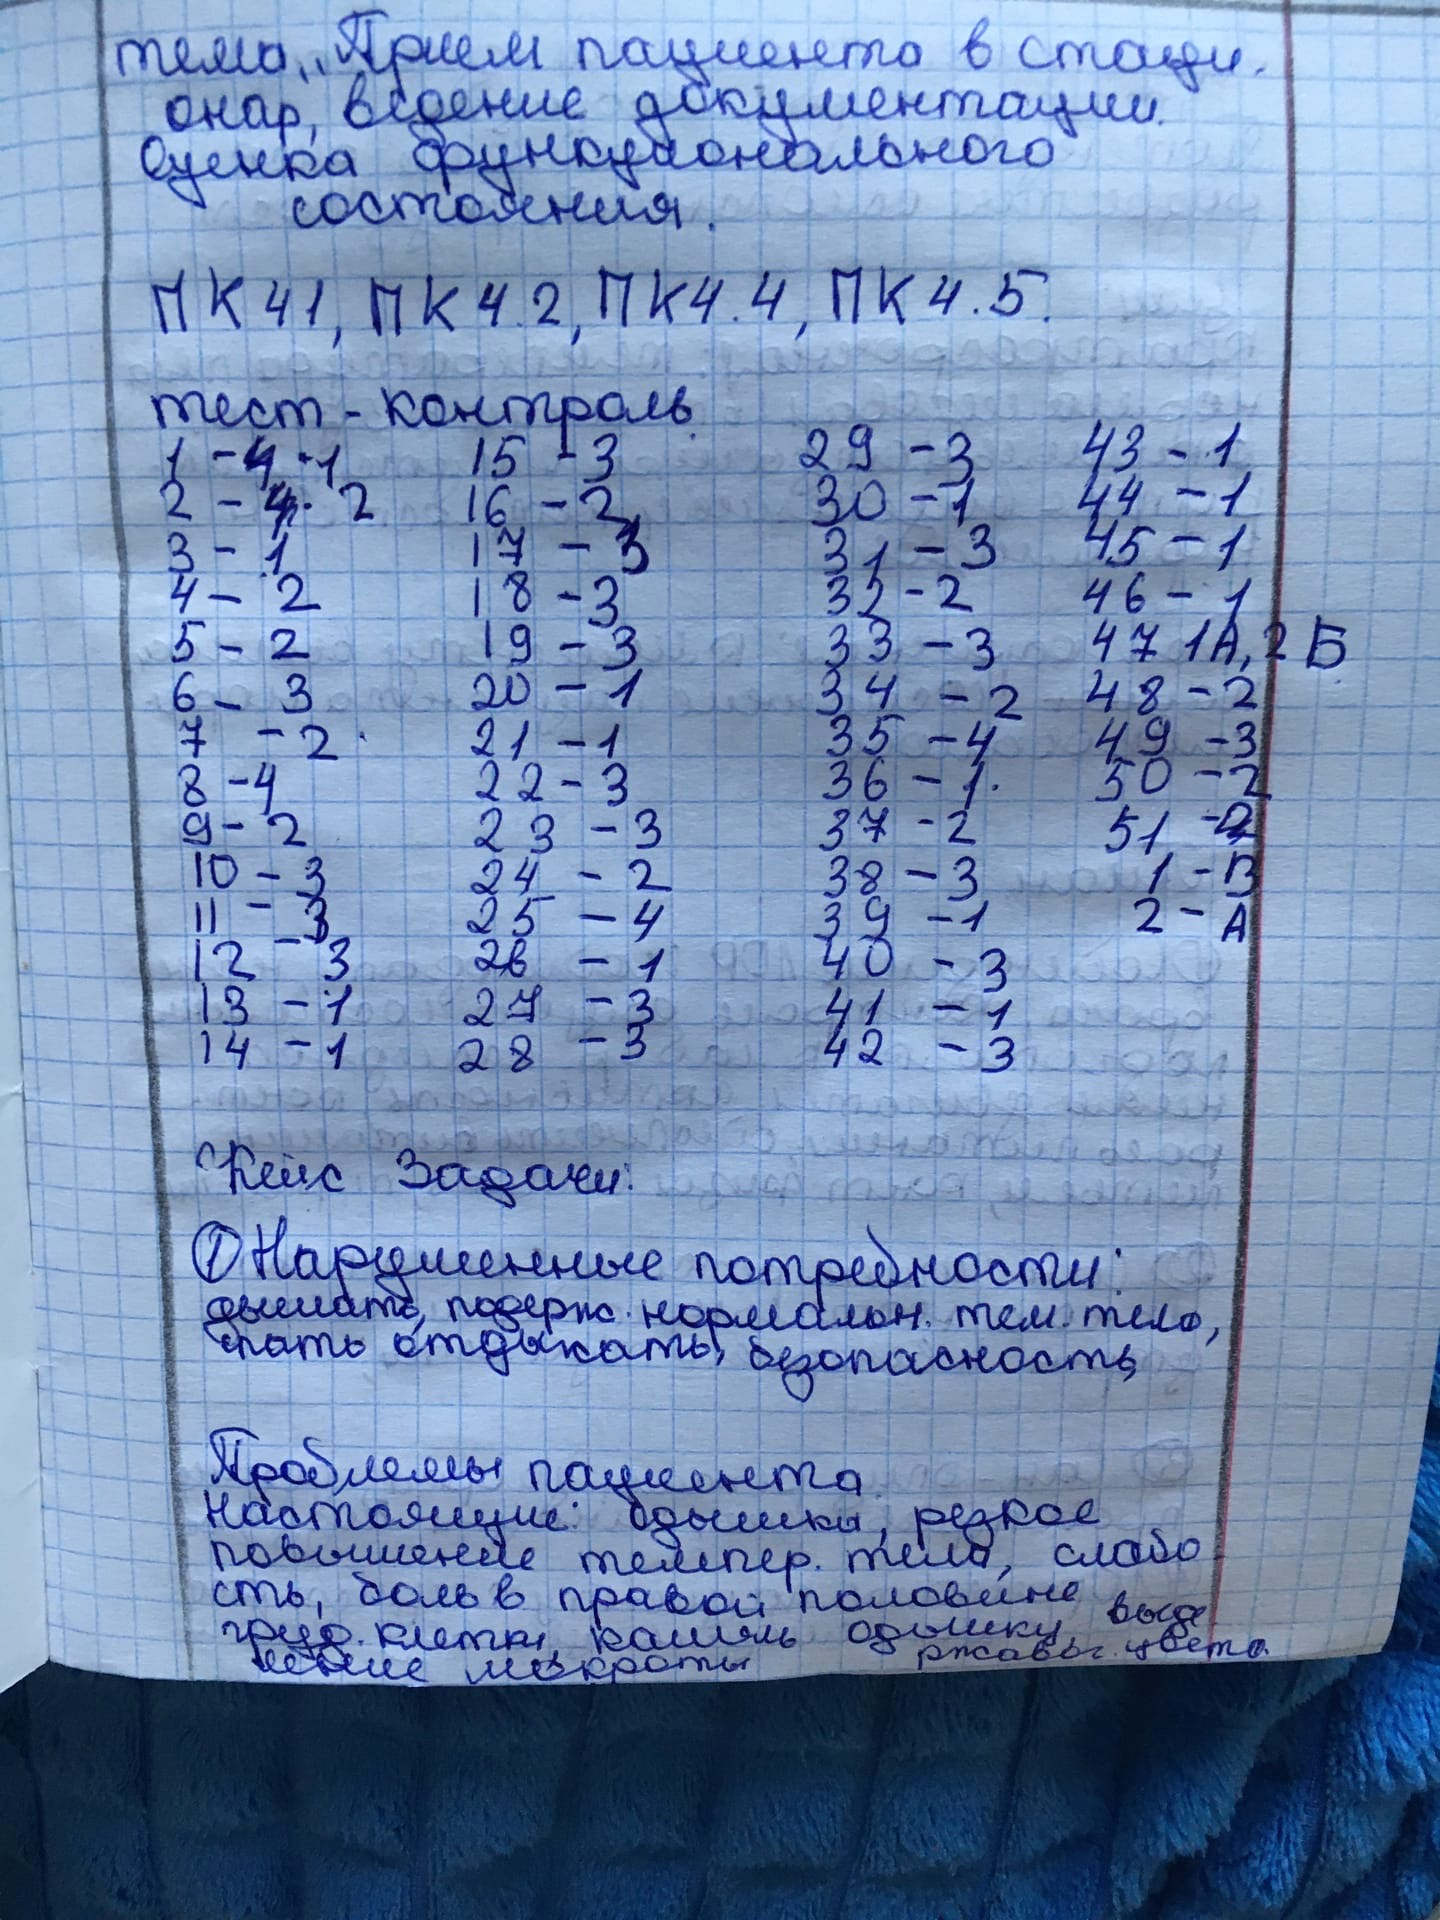 тема „Прием пациента в стаци.
онар, ведение документации.
Оценка функционального
состояния.
ПК 41, ПК 4.2, ПК4.4, ПК 4.5.
тест-контроль
1 - 1 15 - 3 29 - 3 43 - 1
2 - 2 16 - 2 30 - 1 44 - 1
3 - 1 17 - 3 31 - 3 45 - 1
4 - 2 18 - 3 32 - 2 46 - 1
5 - 2 19 - 3 33 - 3 47 1А, 2 Б
6 - 3 20 - 1 34 - 2 48 - 2
7 - 2 21 - 1 35 - 4 49 - 3
8 - 4 22 - 3 36 - 1 50 - 2
9 - 2 23 - 3 37 - 2 51
10 - 3 24 - 2 38 - 3 1 - В
11 - 3 25 - 4 39 - 1 2 - А
12 - 3 26 - 1 40 - 3
13 - 1 27 - 3 41 - 1
14 - 1 28 - 3 42 - 3
Кейс Задачи:
① Нарушенные потребности:
дышать, подерж. нормальн. тем. тела,
спать отдыхать, безопасность,
Проблемы пациента
Настоящие: одышка, резкое
повышение темпер. тела, слабо
сть, боль в правой половине
груд. клетки, кашель одышку выде
ление мокроты ржавог. цвета.